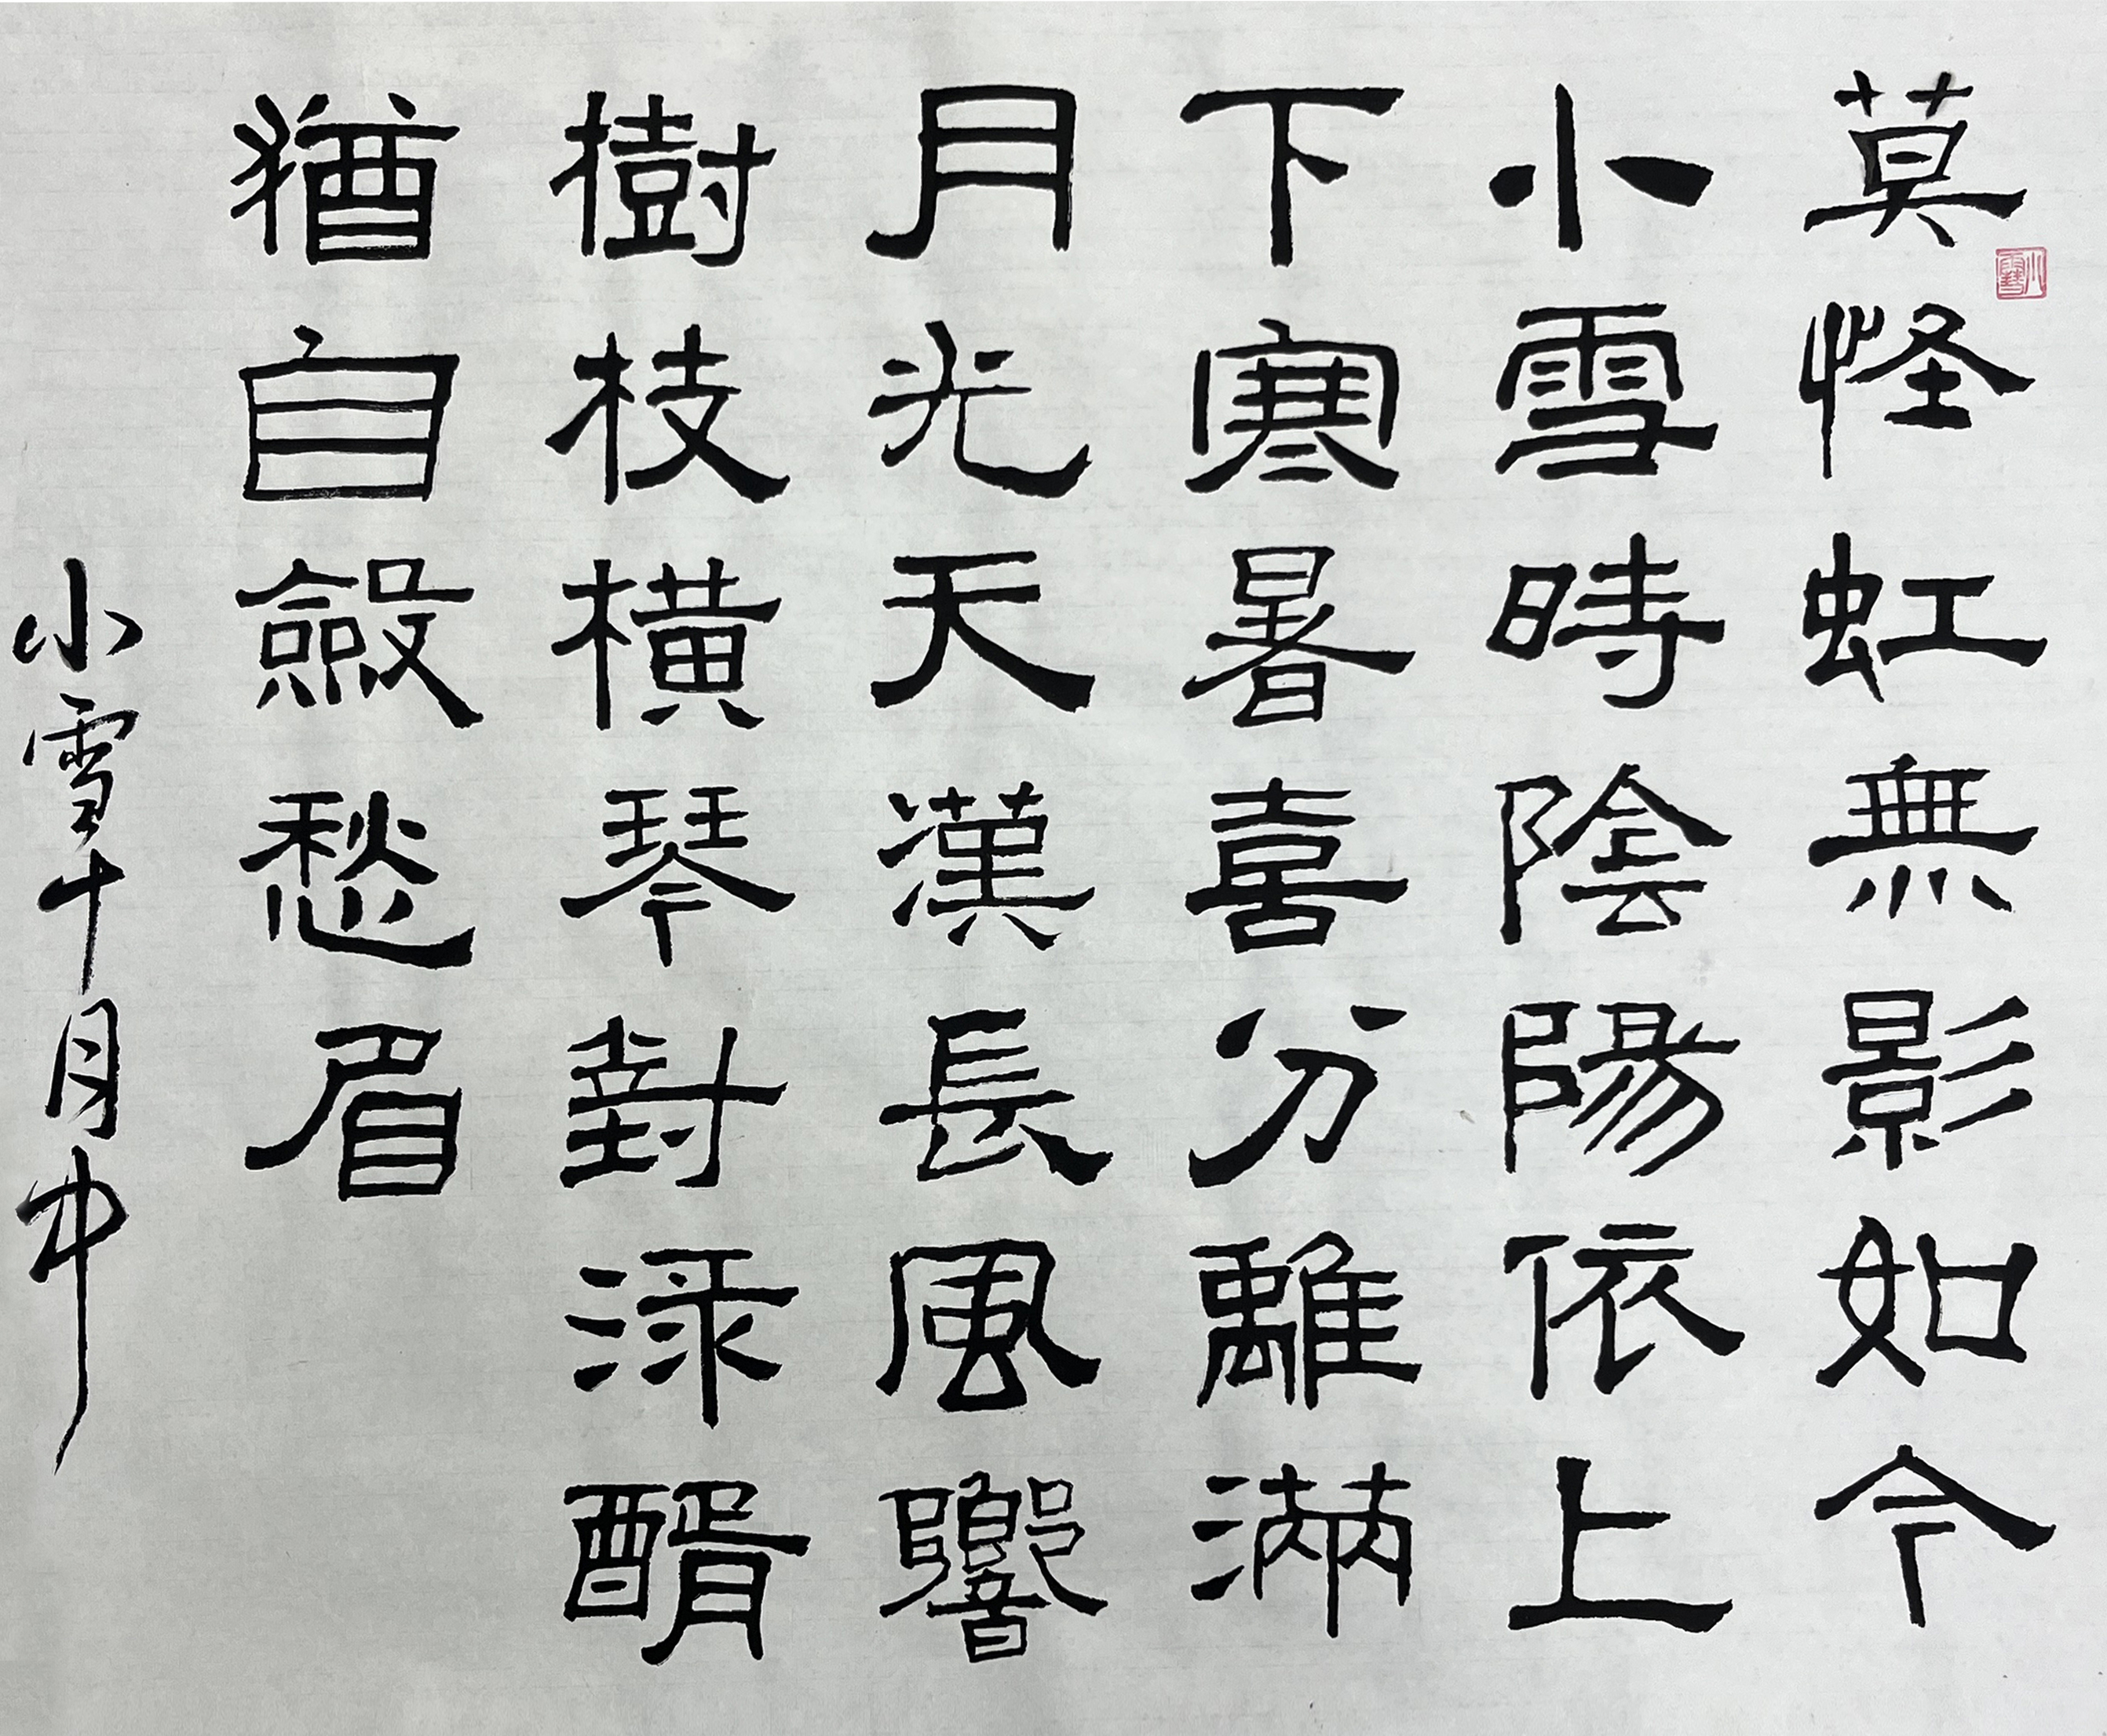 莫怪虹無影如今
小雪時陰陽依上
下寒暑喜分離滿
月光天漢長風響
樹枝橫琴對淥醑
猶自斂愁眉
小雪十月中
小雪